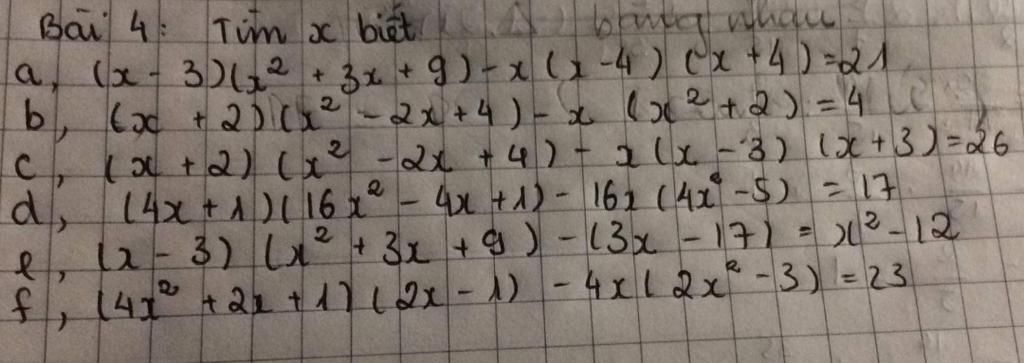 Bài 4: Tìm x biết
a, (x - 3)(x² + 3x + 9) - x (x - 4) (x + 4) = 21
b, (x + 2)(x² - 2x + 4) - x (x² + 2) = 4
c, (x + 2) (x² - 2x + 4) - x (x - 3) (x + 3) = 26
d, (4x + 1)(16x² - 4x + 1) - 16x (4x² - 5) = 17
e, (x - 3) (x² + 3x + 9) - (3x - 17) = x² - 12
f, (4x² + 2x + 1) (2x - 1) - 4x (2x² - 3) = 23